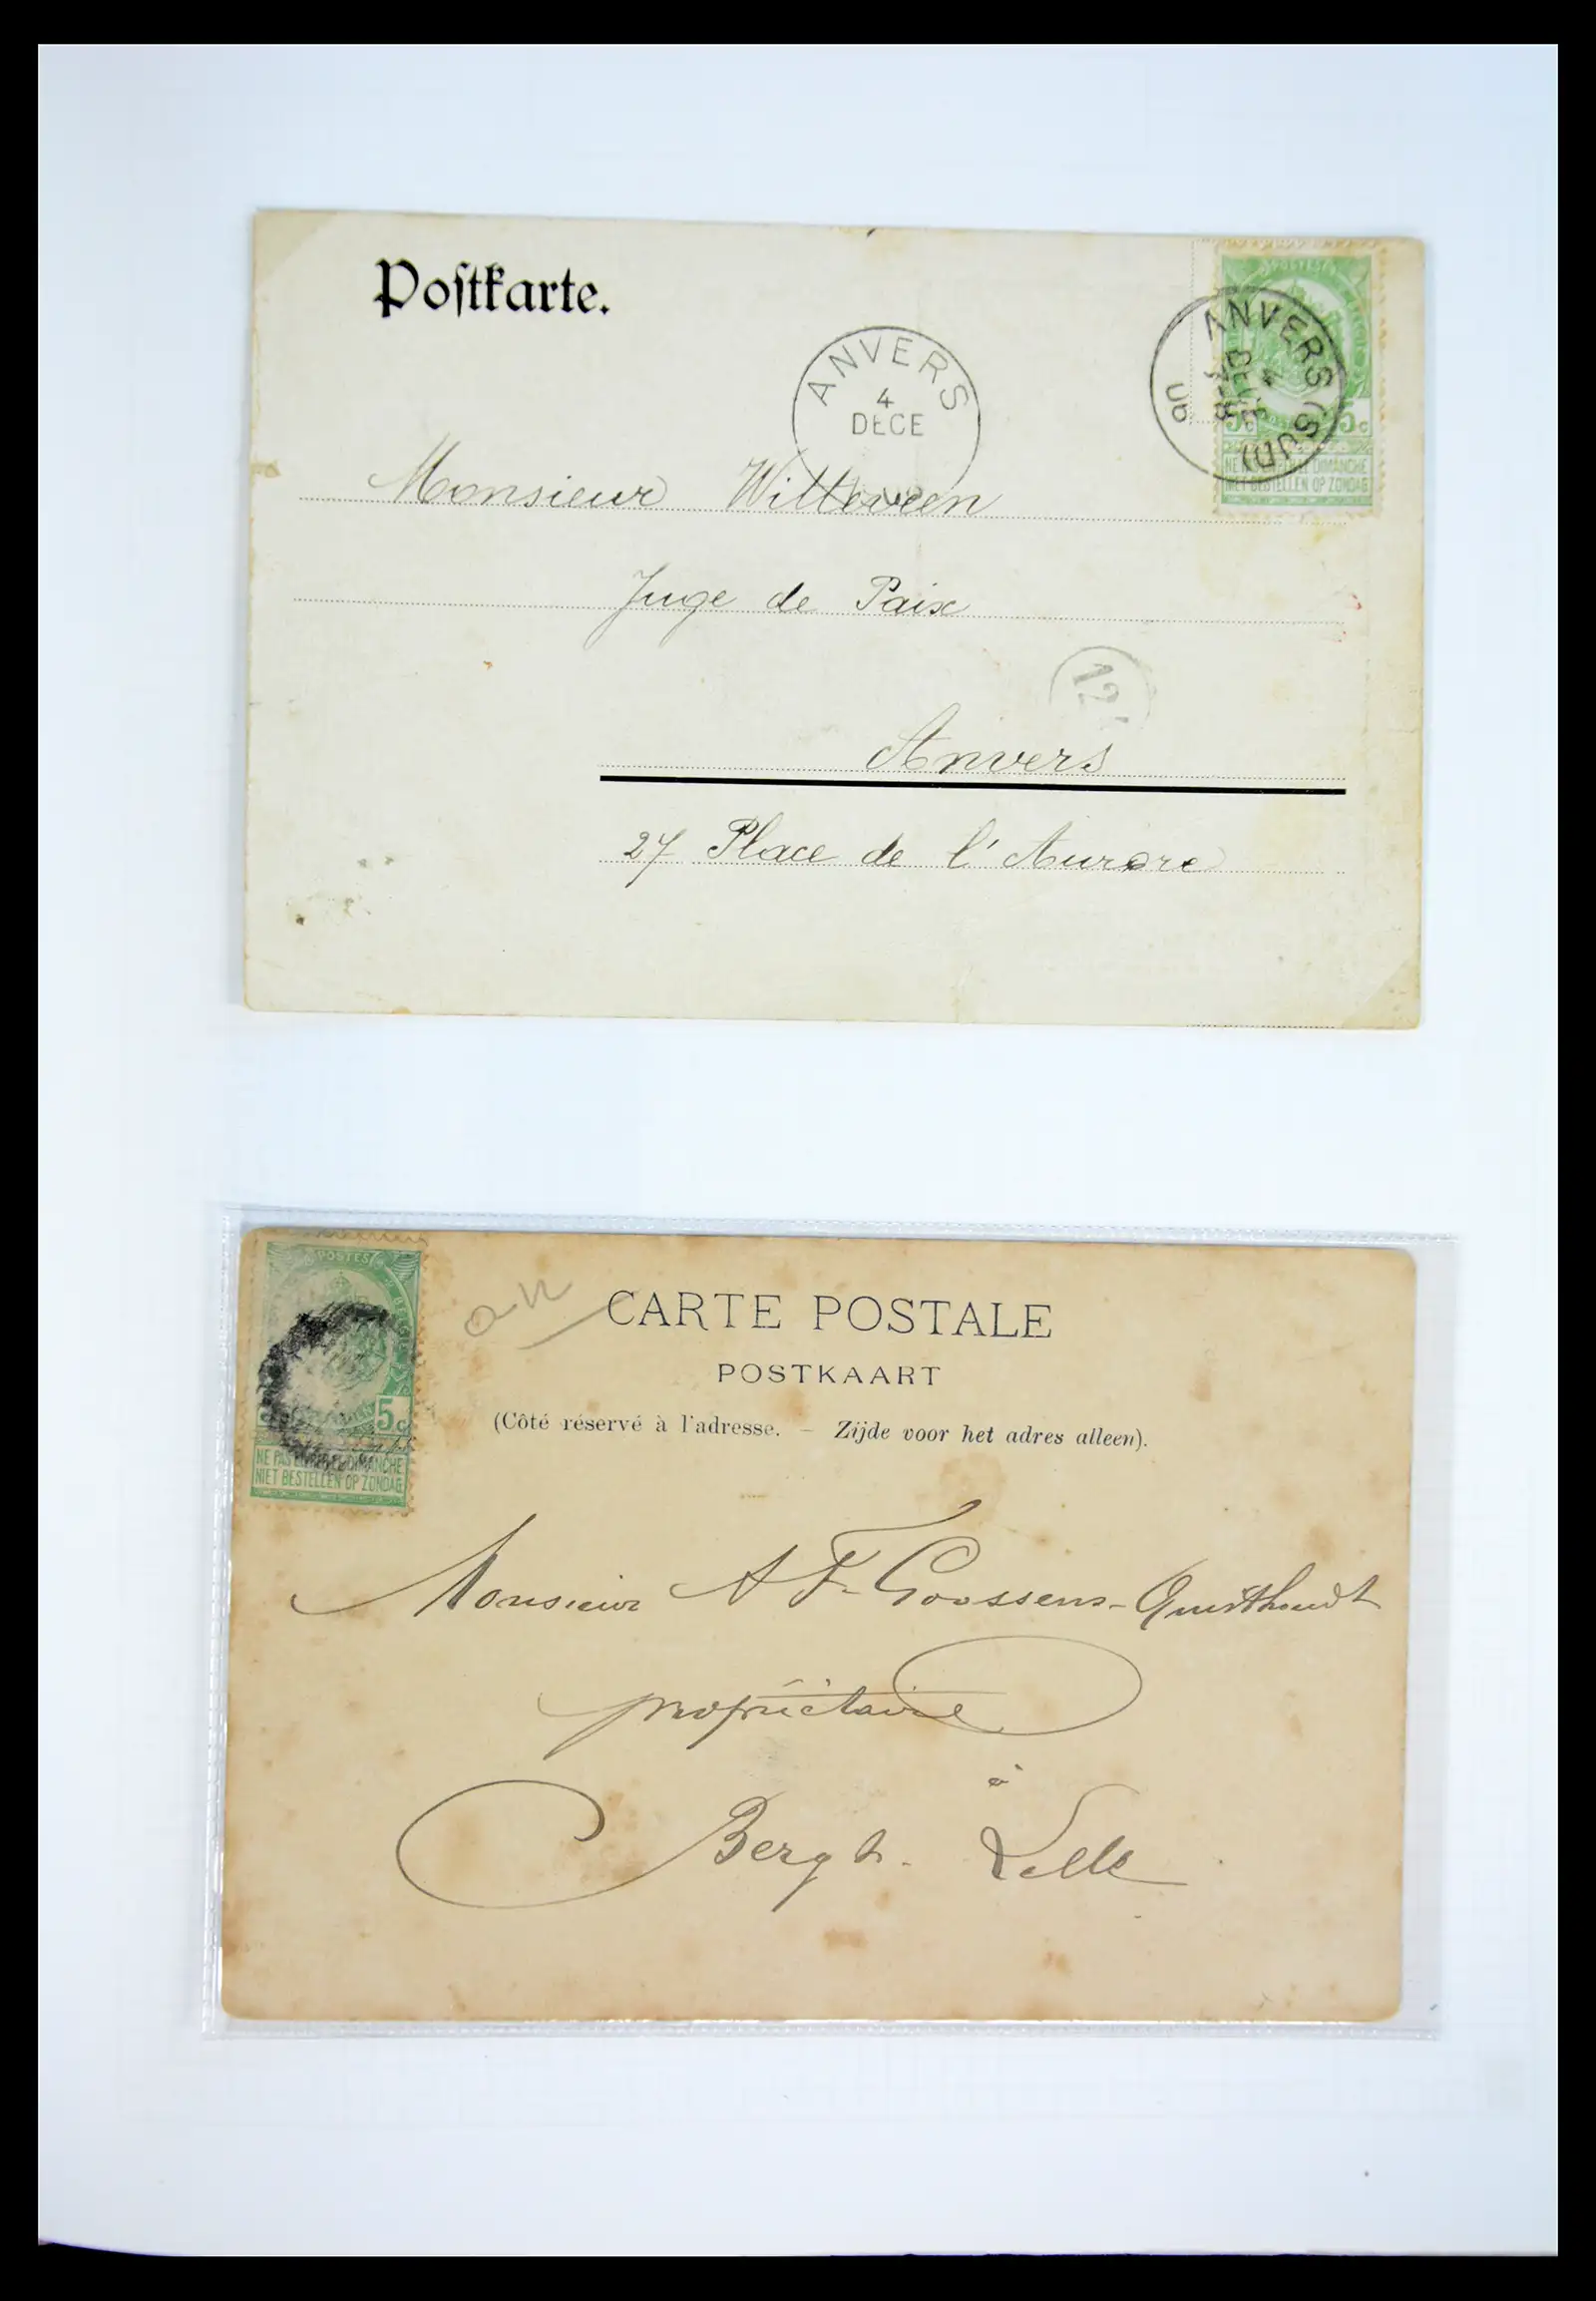 Postkarte.
ANVERS
4
DECE
ANVERS (SUD)
4
DECE
POSTES
5c 5c
NE PAS LIVRER LE DIMANCHE
NIET BESTELLEN OP ZONDAG
Monsieur Witteveen
Juge de Paix
12
Anvers
27 Place de l'Aurore
POSTES
5c
NE PAS LIVRER LE DIMANCHE
NIET BESTELLEN OP ZONDAG
CARTE POSTALE
POSTKAART
(Côté réservé à l'adresse. – Zijde voor het adres alleen).
Monsieur A F. Goossens-
propriétaire
à
Bergh. Selk